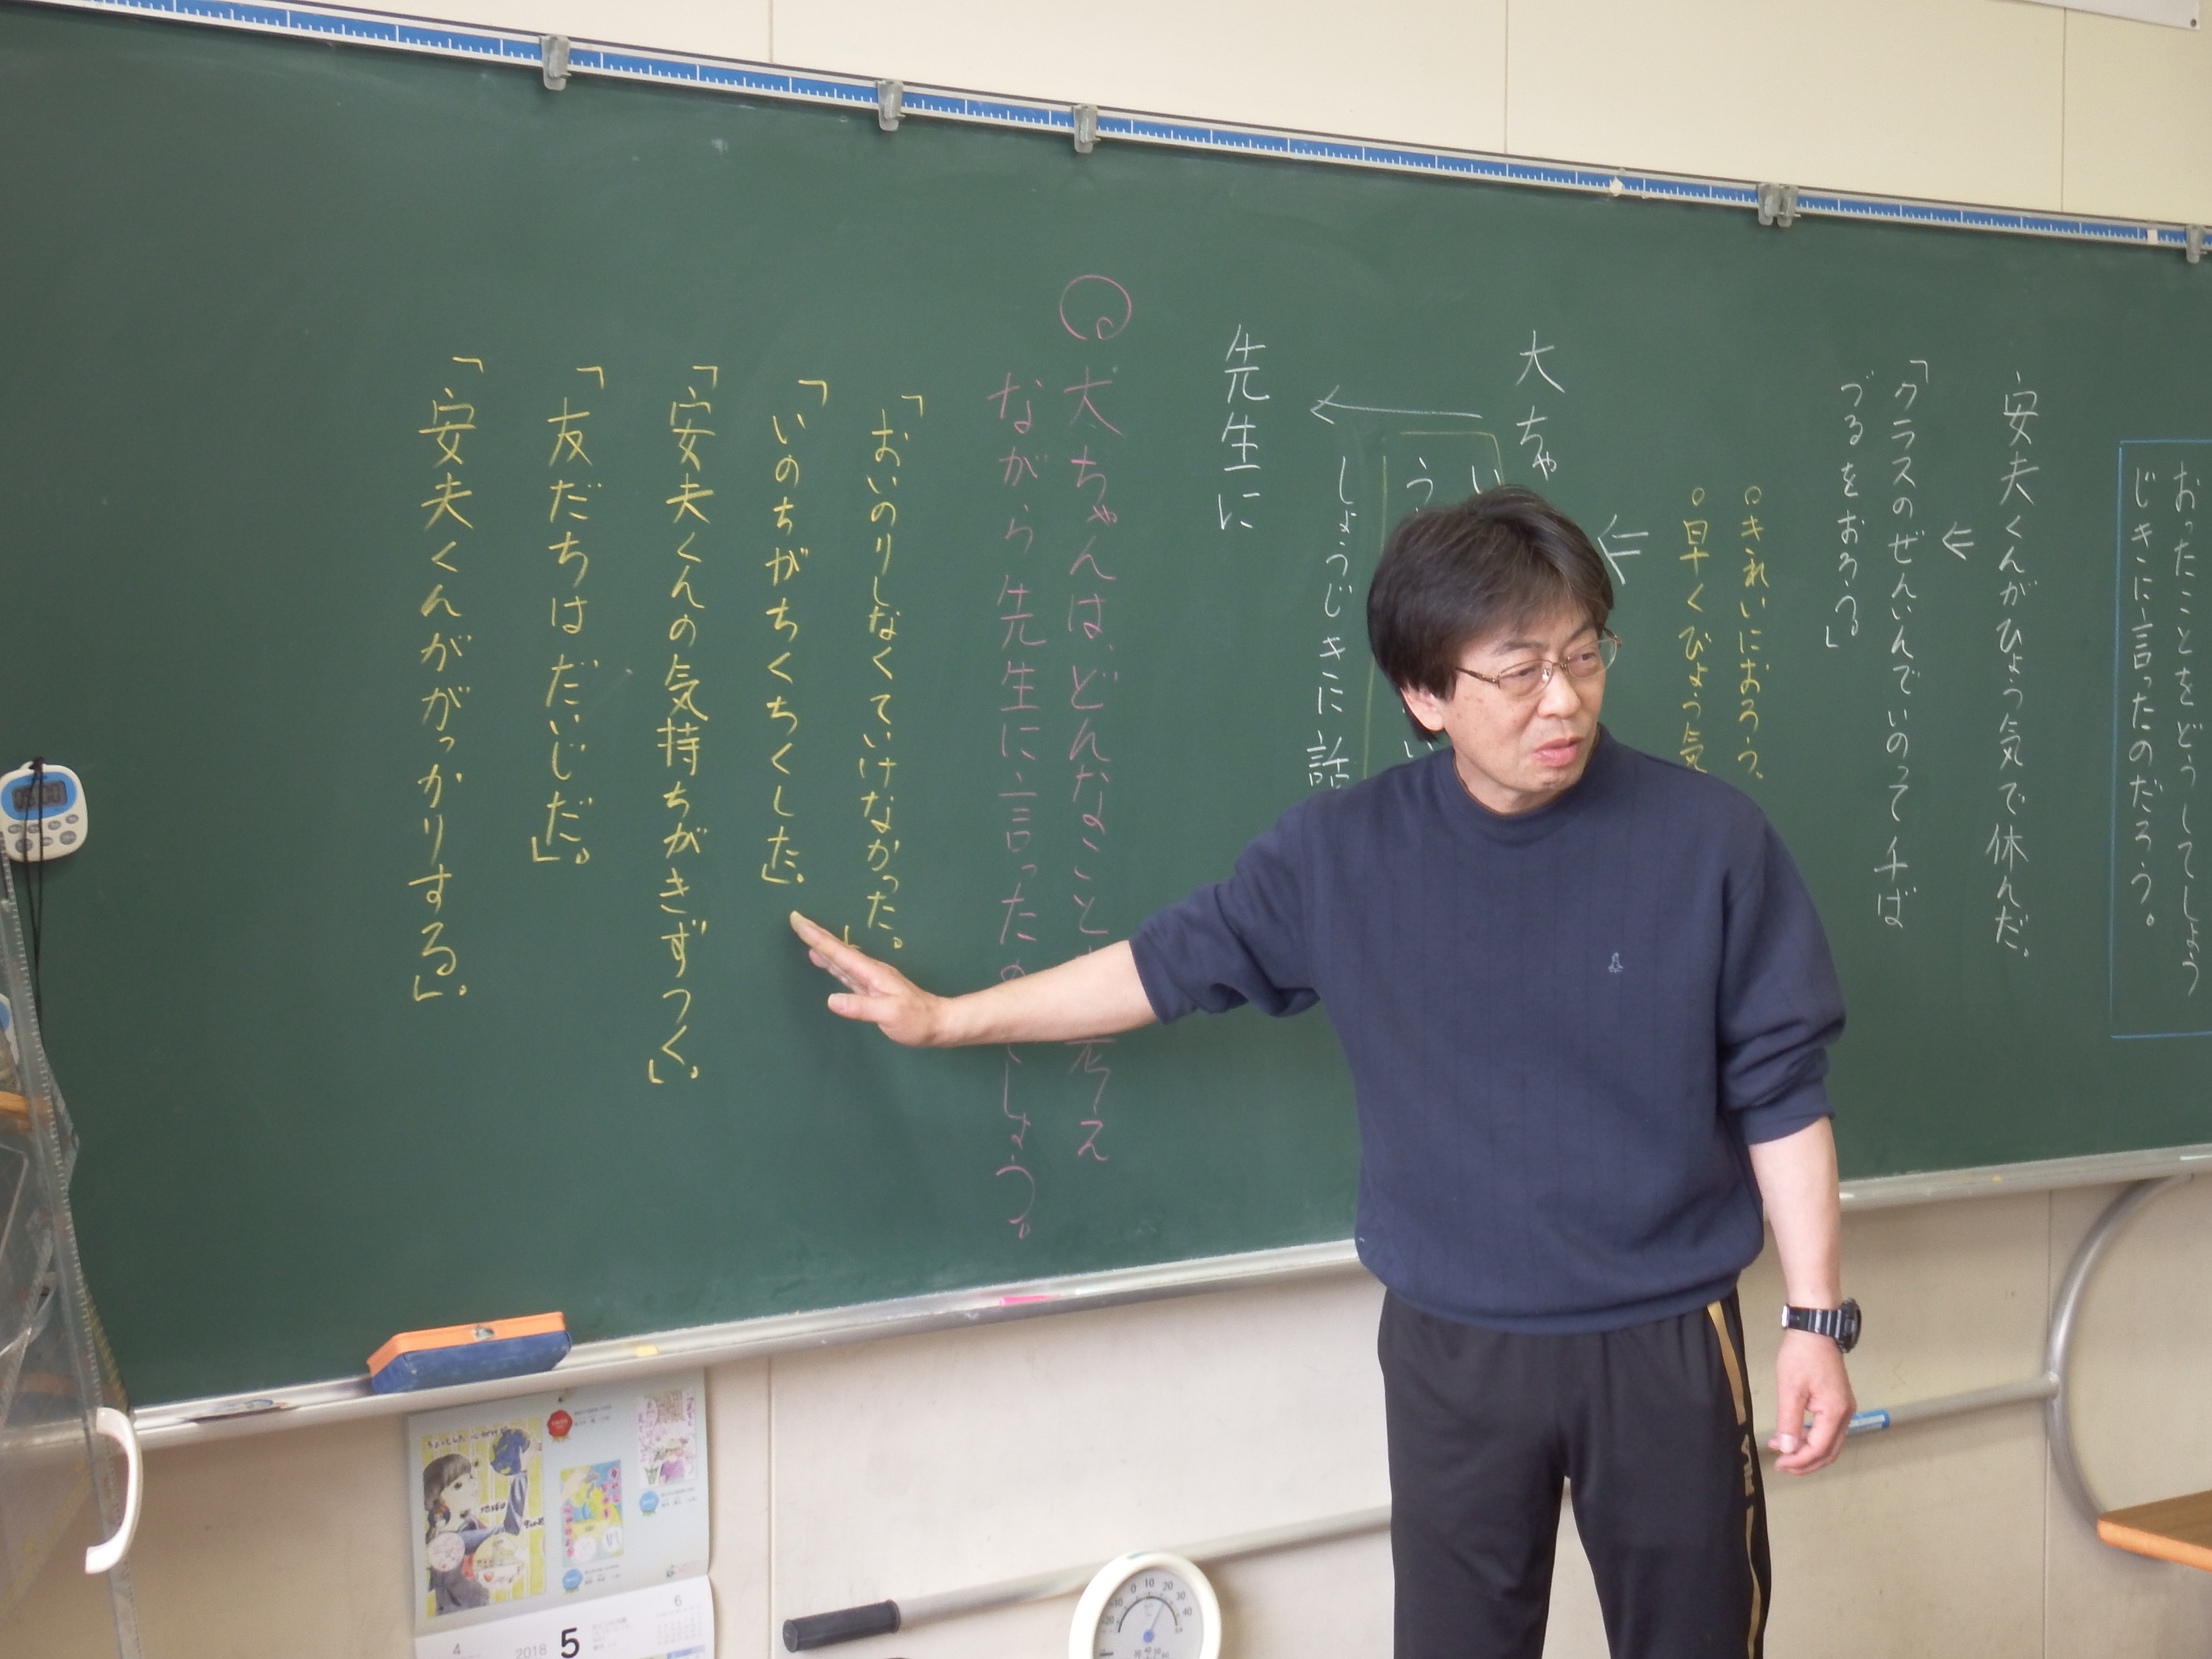 おったことをどうしてしょう
じきに言ったのだろう。
安夫くんがびょう気で休んだ。
「クラスのぜんいんでいのって千ば
づるをおろう」
○きれいにおろう、
○早くびょう気
大ちゃ
い
う
い
しょうじきに話
先生に
大ちゃんは、どんなこと
考え
ながら先生に言ったの
しょう。
「おいのりしなくていけなかった。」
「いのちがちくちくした」。
「安夫くんの気持ちがきずつく」。
「友だちはだいじだ」。
「安夫くんががっかりする」。
4
2018
5
6
0 10 20 30 40